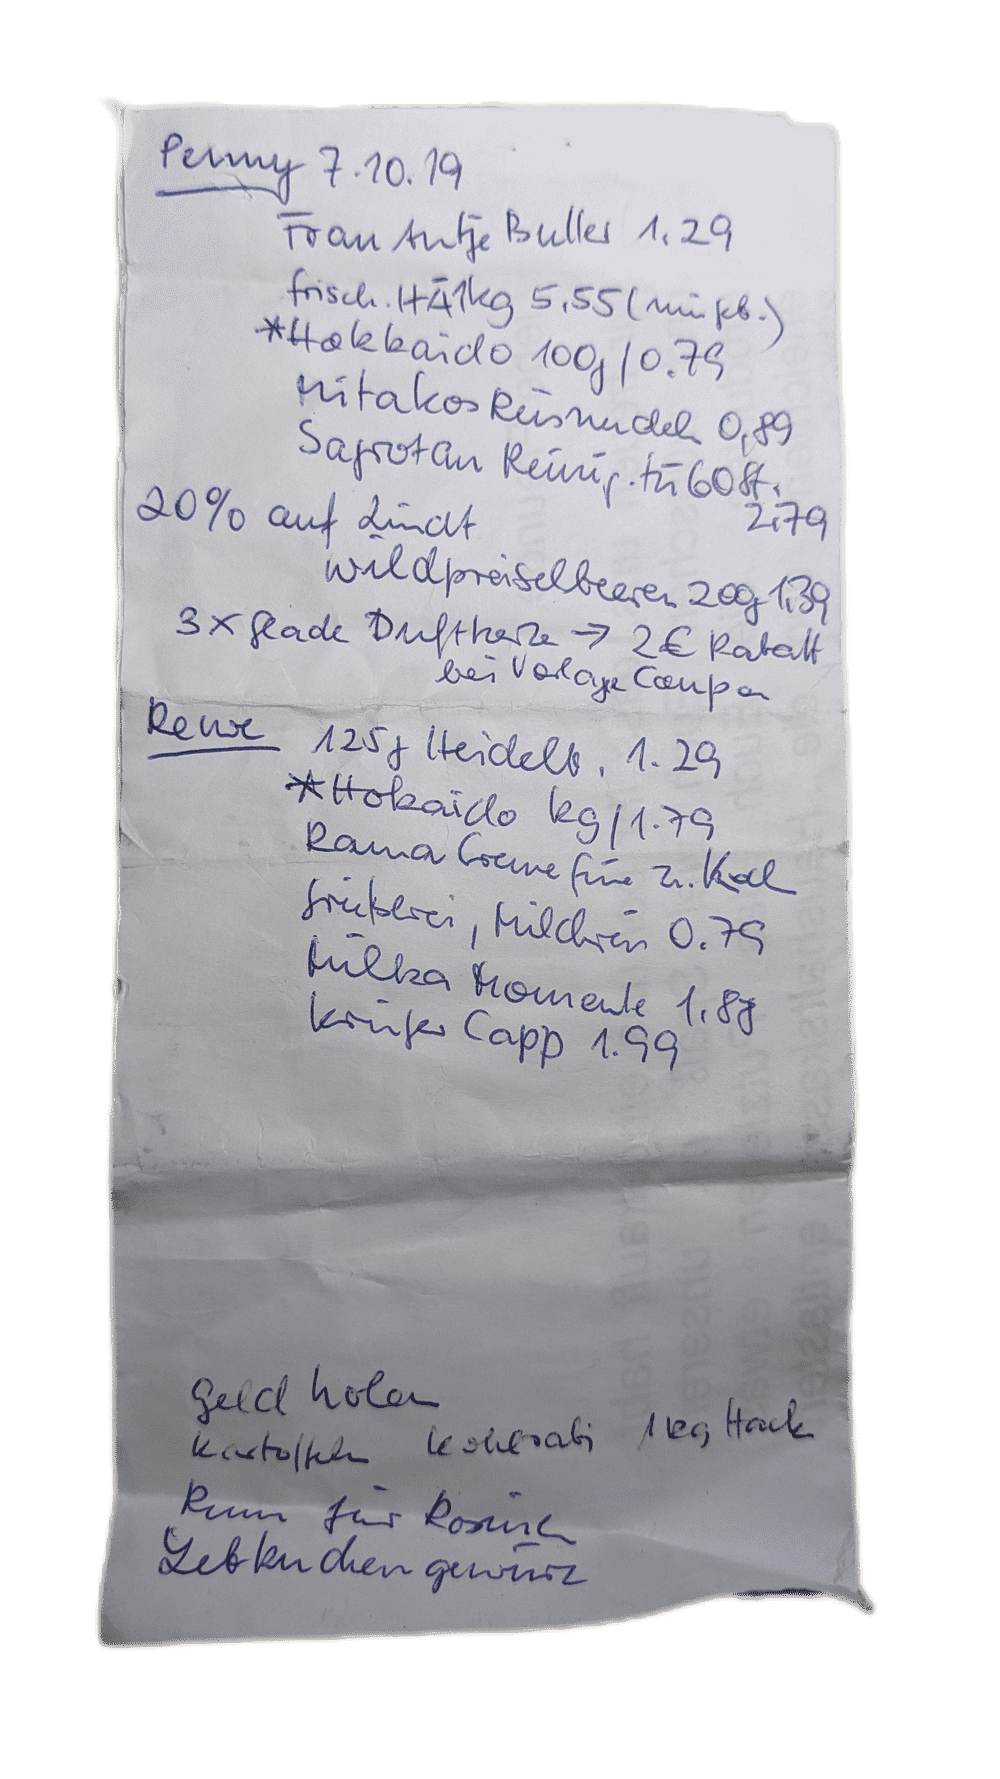 Penny 7.10.19
Frau Antje Butter 1.29
frisch. HÄ1kg 5,55
*Hokkaido 100g/0.79
Mitakos Reisnudeln 0,89
Sagrotan Reinig. tü 60 St.
2.79
20% auf Lindt
Wildpreiselbeeren 200g 1,39
3x Glade Duftkerze → 2€ Rabatt
bei Vorlage Coupon
Rewe 125g Heidelb. 1.29
*Hokaido kg/1.79
Rama Creme fine z. Koch
Grießbrei, Milchreis 0.79
Milka Momente 1,89
Krüger Capp 1.99
Geld holen
Kartoffeln Kohlrabi 1kg Hack
Rum für Rosinen
Lebkuchengewürz